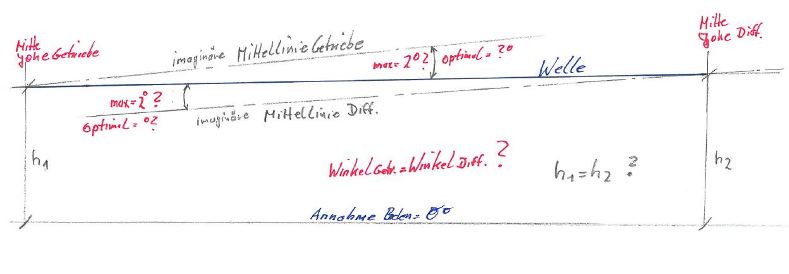 Mitte
Johe Getriebe
imaginäre Mittellinie Getriebe
max = 2°?
optimal = ?°
Mitte
Johe Diff.
Welle
max = 2°?
optimal = °?
imaginäre Mittellinie Diff.
h1
Winkel Getr. = Winkel Diff. ?
h1 = h2 ?
h2
Annahme Boden = 0°